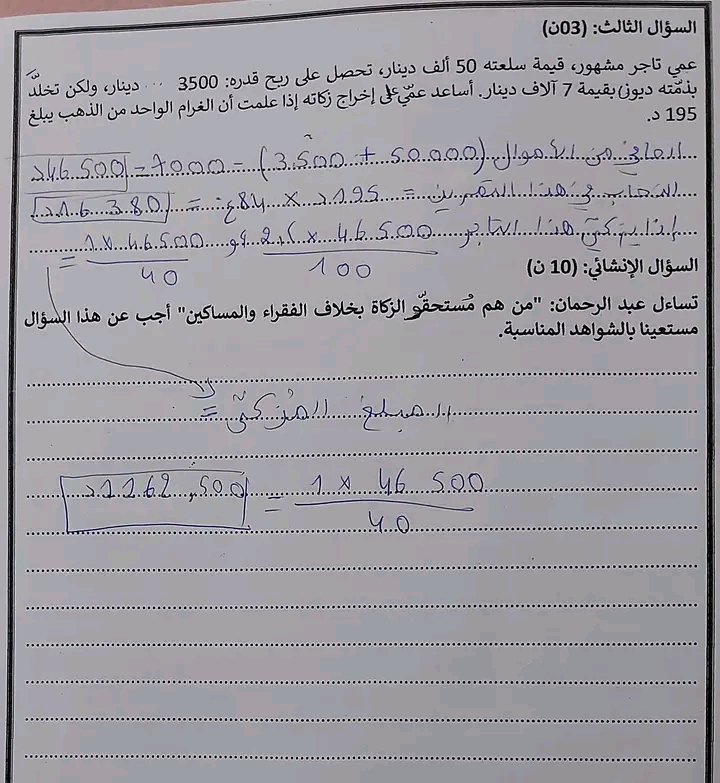 السؤال الثالث: (03ن)
عمي تاجر مشهور، قيمة سلعته 50 ألف دينار، تحصل على ربح قدره: 3500 ... دينار، ولكن تخلدّ
بذمّته ديون بقيمة 7 آلاف دينار. أساعد عمّي على إخراج زكاته إذا علمت أن الغرام الواحد من الذهب يبلغ
195 د.
الصافي من الأموال (50.000 + 3.500) - 7000 = 46.500د
النصاب في هذا التمرين = 195د × 84غ = 16.380د
إذا يزكّي هذا التاجر 46.500 × 2,5 / 100 أو 46.500 × 1 / 40 =
السؤال الإنشائي: (10 ن)
تساءل عبد الرحمان: "من هم مُستحقّو الزكاة بخلاف الفقراء والمساكين" أجب عن هذا السؤال
مستعينا بالشواهد المناسبة.
المبلغ المزكّى =
46 500 × 1 / 40 = 1162,500د